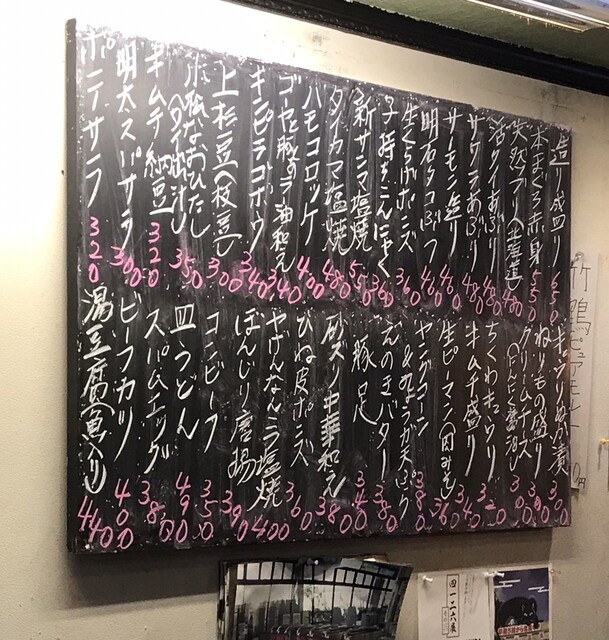 造り盛り 650
本まぐろ赤身 550
天然ブリ(北海道) 480
活タイあぶり 480
サワラあぶり 480
サーモン造り 460
明石タコぶつ 460
生くらげポンズ 360
子持ちこんにゃく 360
新サンマ塩焼 550
タイカマ塩焼 480
ハモコロッケ 400
ゴーヤと豚のラー油和え 340
キンピラゴボウ 340
上杉豆(枝豆) 300
小松なおひたし(タイ出汁) 350
キムチ納豆 320
明太スパサラ 300
ポテサラ 320
キュウリぬか漬 300
ねりもの盛り 380
クリームチーズ
ちくわキュウリ
キムチ盛り 340
生ピーマン(肉みそ) 360
ヤングコーン&みょうが天ぷら 380
えのきバター 380
豚足 350
砂ズリ中華和え 380
ひね皮ポンズ 360
やげんなんこつ塩焼 400
ぼんじり唐揚 390
コンビーフ 350
皿うどん 490
スパムエッグ 380
ビーフカツ 400
湯豆腐(魚入り) 440
竹鴨ピュアモルト
四一二六展